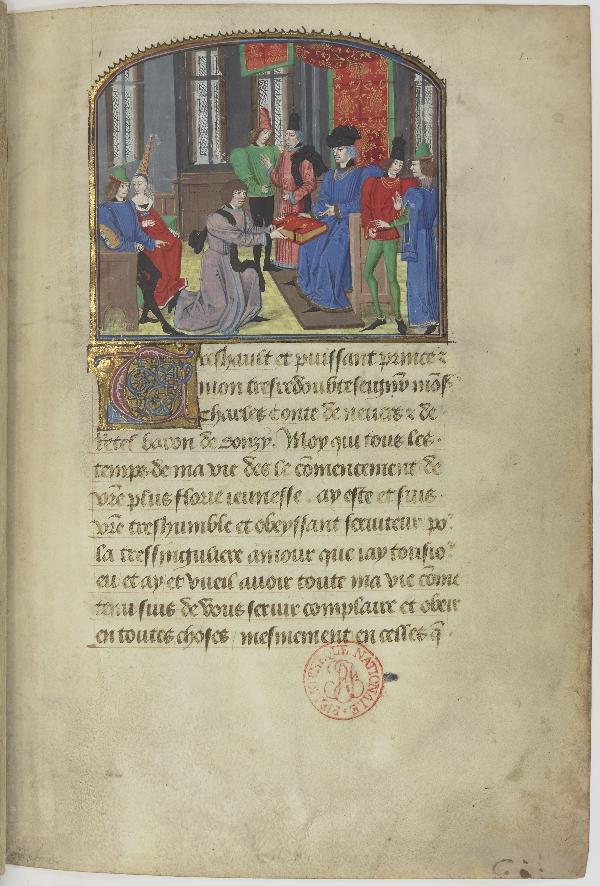 Treshault et puissant prince et
mon tresredoubte seignr mōsr
Charles Conte de neuers et de
Retel baron de Donzy. Moy qui tous les
temps de ma vie des le cōmencement de
vr̄e plus florie ieunesse . ay este et suis
vr̄e treshumble et obeyssant seruiteur por
la tressinguliere amour que iay tousiors
eu et ay et vueil auoir toute ma vie cōme
tenu suis de vous seruir complaire et obeir
en toutes choses / mesmement en celles q̄
BIBLIOTHEQUE NATIONALE